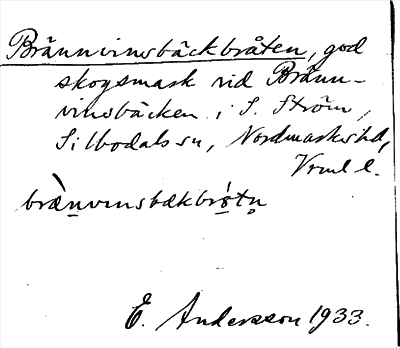 Brännvinsbäckbråten, god
skogsmark vid Bränn-
vinsbäcken i S. Ström,
Silbodals sn, Nordmarks hd,
Vrml l.
bræ̀n̲vinsbækbró̲tn̥
E. Andersson 1933.